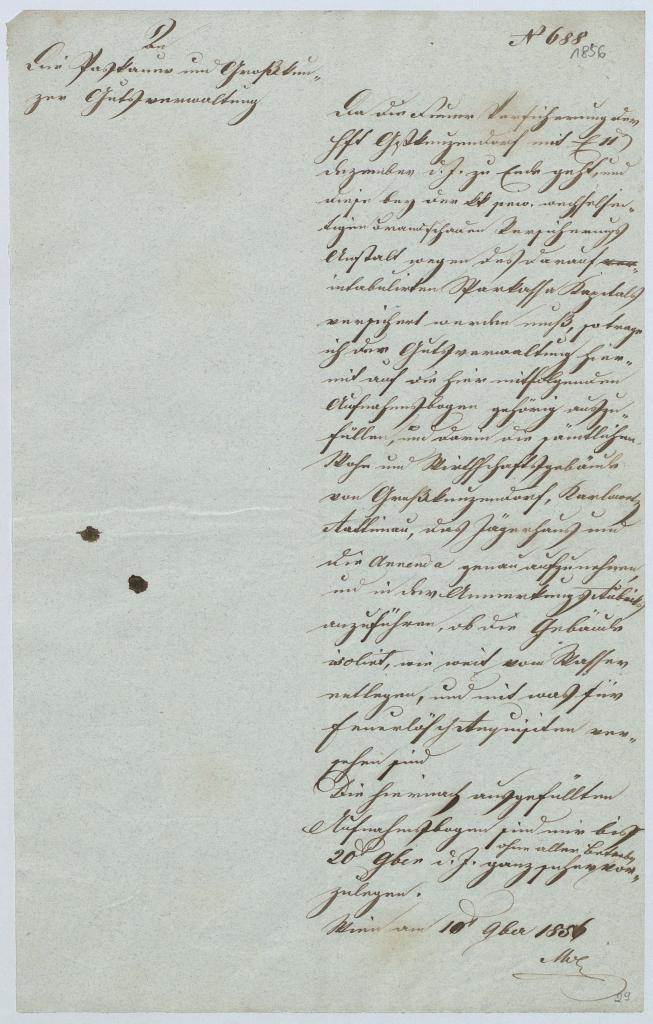 An
Die Paskauer und Großkun-
zer Gutsverwaltung
N 688
1856
Da die Feuer Versicherung der
Hft Gßkunzendorf mit
Dezember d. J. zu Ende geht, und
diese bey der kk priv. wechselsei-
tigen Brandschaden Versicherungs
Anstalt wegen des darauf
intabulirten Sparkassa Kapitals
versichert werden muß, so trage
ich der Gutsverwaltung hier-
mit auf die hier mitfolgenden
Aufnahmsbogen gehörig auszu-
füllen, und darin die sämtlichen
Wohn und Wirthschaftsgebäude
von Großkunzendorf,
das Jägerhaus und
die genau aufzunehmen,
und in der Anmerkungs Rubrik
anzuführen, ob die Gebäude
isolirt, wie weit vom Wasser
entlegen, und mit was für
Feuerlösch Requisiten ver-
sehen sind
Die hiernach ausgefüllten
Aufnahmsbogen sind mir bis
20 9ber d. J. ganz sicher vor-
ohne aller
zulegen.
Wien am 10 9ber 1856
29